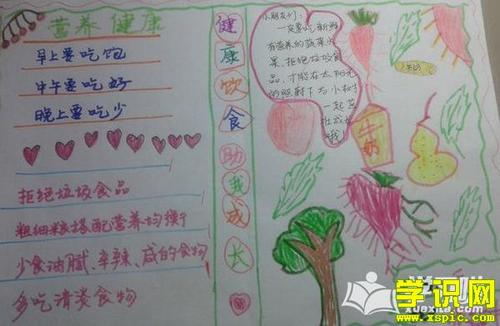 营养健康
早上要吃饱
中午要吃好
晚上要吃少
拒绝垃圾食品
粗细粮搭配营养均衡
少食油腻、辛辣、咸的食物
多吃清淡食物
健康饮食助我成长
小朋友们:
一定要吃新鲜
有营养的蔬菜水
果、拒绝垃圾食
品,才能在太阳光
的照射下与小树
一起茁
壮成长
哦!
牛奶
学识网
www.xspic.com